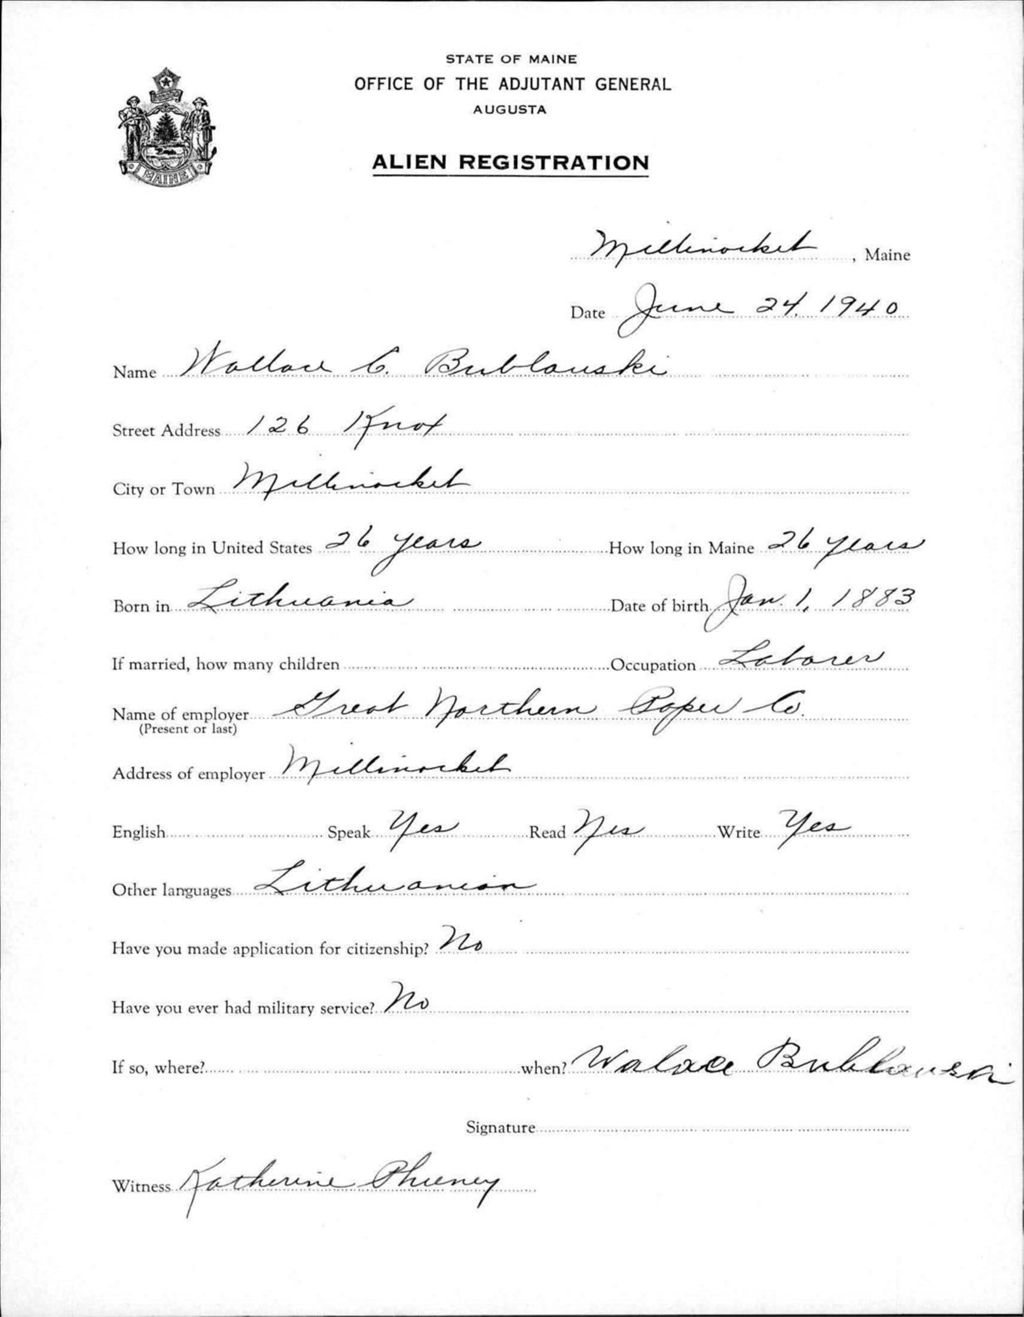 STATE OF MAINE
OFFICE OF THE ADJUTANT GENERAL
AUGUSTA
ALIEN REGISTRATION
MAINE
Millinocket, Maine
Date June 24, 1940
Name Wallace C. Bublauski
Street Address 126 Knox
City or Town Millinocket
How long in United States 26 years How long in Maine 26 years
Born in Lithuania Date of birth Jan. 1, 1883
If married, how many children Occupation Laborer
Name of employer Great Northern Paper Co.
(Present or last)
Address of employer Millinocket
English Speak Yes Read Yes Write Yes
Other languages Lithuanian
Have you made application for citizenship? No
Have you ever had military service? No
If so, where? when? Walace Bublauski
Signature
Witness Katherine